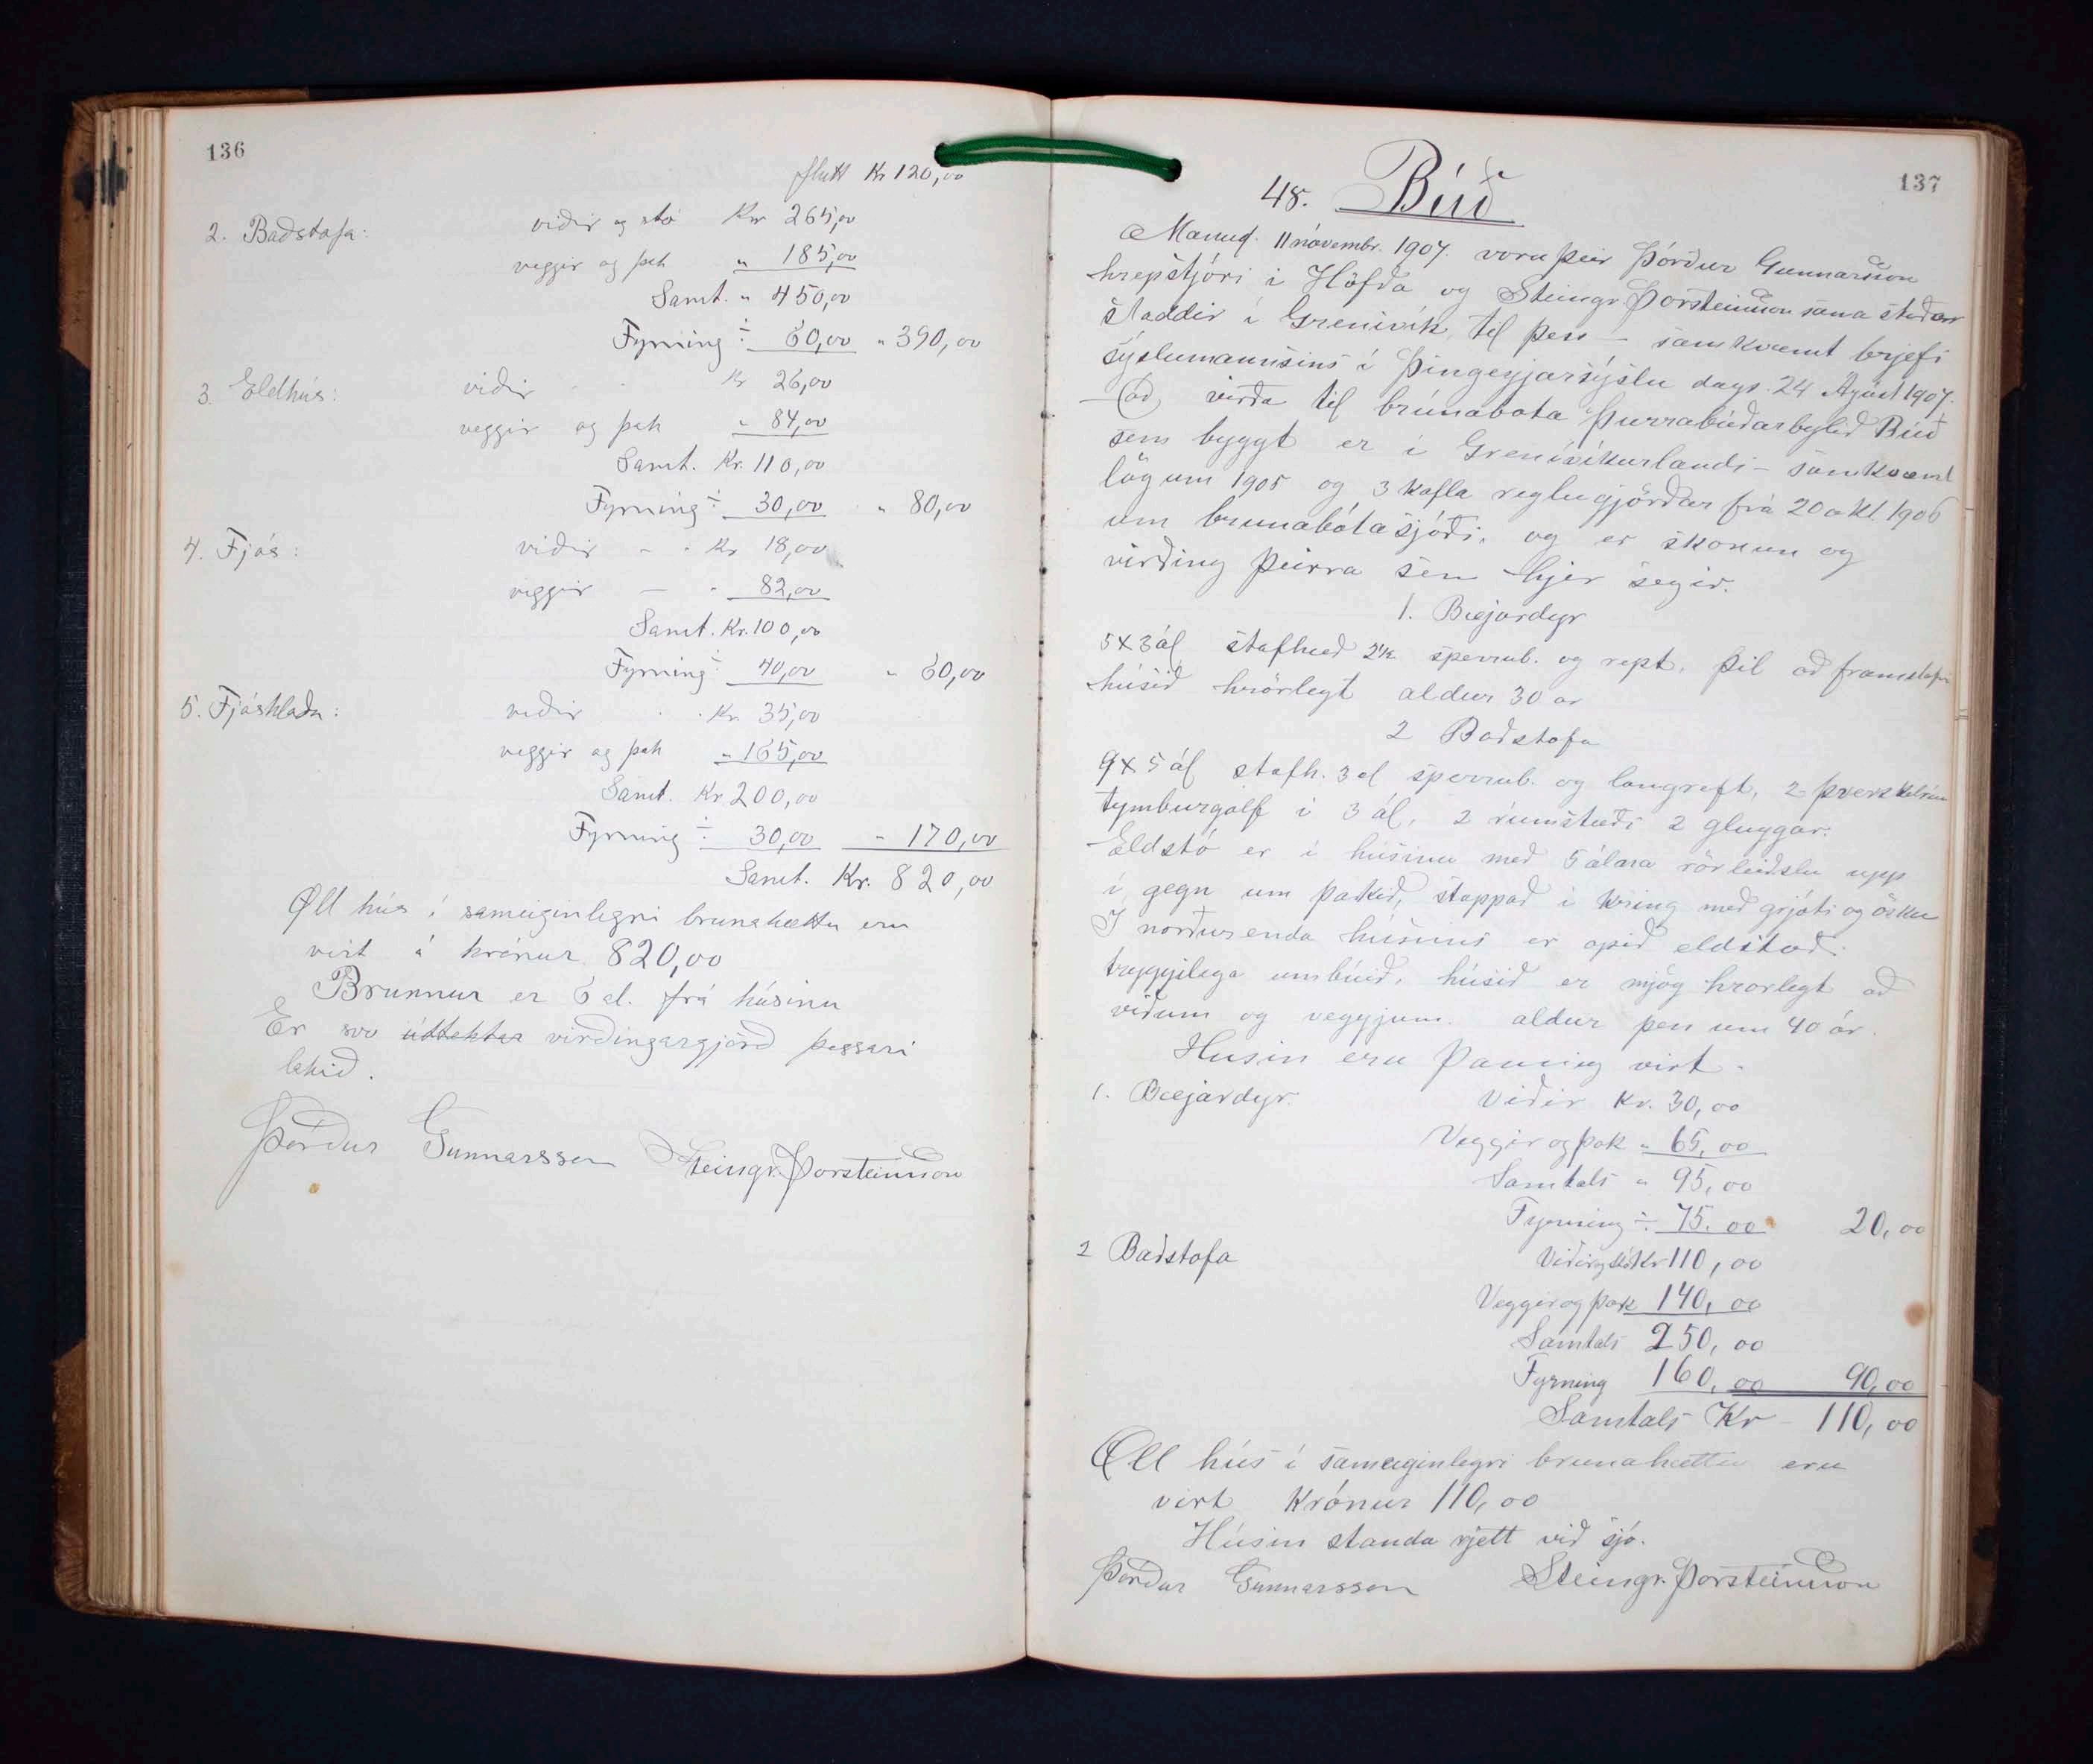 136
flutt Kr 120,00
2. Baðstofa: viðir og stó Kr 265,00
veggir og þak " 185,00
Samt. " 450,00
Fyrning ÷ 60,00 " 390,00
3. Eldhús: viðir - - Kr 26,00
veggir og þak " 84,00
Samt. Kr. 110,00
Fyrning ÷ 30,00 " 80,00
4. Fjós: viðir - - Kr 18,00
veggir — - 82,00
Samt. Kr. 100,00
Fyrning ÷ 40,00 " 60,00
5. Fjóshlaða: viðir - - Kr 35,00
veggir og þak " 165,00
Samt. Kr 200,00
Fyrning ÷ 30,00 " 170,00
Samt. Kr. 820,00
Öll hús í sameiginlegri brunahættu eru
virt á krónur 820,00
Brunnur er 6 al. frá húsinu
Er svo úttektar virðingargjörð þessari
lokið.
Þórður Gunnarsson Steingr. Þorsteinsson
137
48. Búð
Mánud. 11 nóvembr. 1907. voru þeir Þórður Gunnarsson
hrepstjóri í Höfða og Steingr. Þorsteinsson sama staðar
staddir í Grenivík, til þess - samkvæmt brjefi
sýslumannsins í Þingeyjarsýslu dags. 24 Ágúst 1907.
- að virða til brunabota þurrabúðarbýlið Búð
sem byggt er í Grenivíkurlandi - samkvæmt
lögum 1905 og 3 kafla reglugjörðar frá 20 okt. 1906
um brunabótasjóði, og er skoðun og
virðing þeirra sem hjer segir.
1. Bæjardyr
5x3 ál stafhæð 2½ sperrub. og rept. þil að framstafn
húsið hrörlegt aldur 30 ár
2 Baðstofa
9x5 ál stafh. 3 al sperrub. og langreft, 2 þverskilrúm
tymburgólf í 3 ál, 2 rúmstæði 2 gluggar.
Eldstó er í húsinu með 5 álna rörleiðslu upp
í gegn um þakið, stappað í kring með grjóti og ösku
I norðurenda húsins er opið eldstæði
tryggilega umbúið, húsið er mjög hrorlegt að
viðum og veggjum. aldur þess um 40 ár.
Husin eru þannig virt.
1. Bæjardyr. Viðir Kr. 30,00
Veggir og þak " 65,00
Samtals " 95,00
Fyrning ÷ 75.00 20,00
2 Baðstofa Viðir og stó Kr 110,00
Veggir og þak 140,00
Samtals 250,00
Fyrning 160,00 90,00
Samtals Kr - 110,00
Öll hús í sameiginlegri brunahættu eru
virt Krónur 110,00
Húsin standa rjett við sjó.
Þórður Gunnarsson Steingr. Þorsteinsson